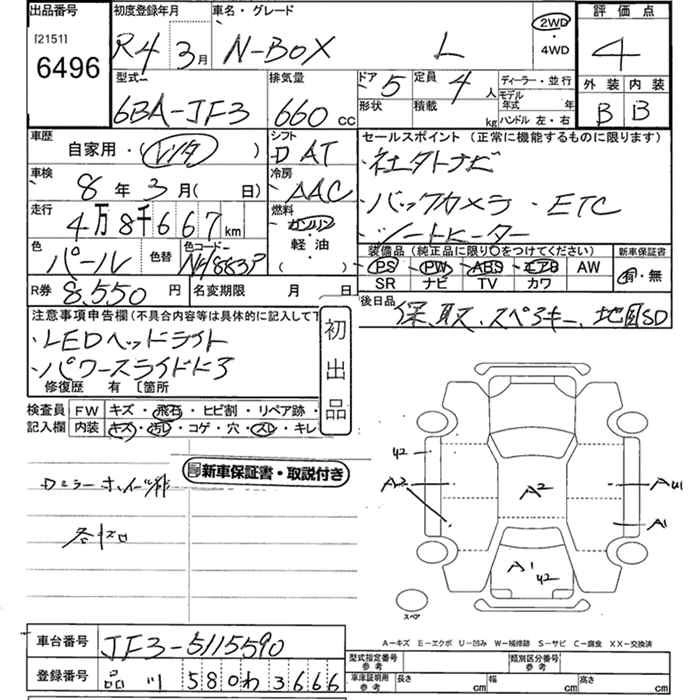 出品番号 初度登録年月 車名・グレード 評価点
[2151] 6496 R4 3月 N-BOX L 2WD ・4WD 4
型式 排気量 ドア 5 定員 4人 ディーラー・並行 外装 内装
6BA-JF3 660 CC 形状 積載 kg モデル年式 年 ハンドル 左・右 B B
車歴 自家用・(レンタ) シフト D AT セールスポイント (正常に機能するものに限ります)
車検 8年 3月( 日) 冷房 AAC ・社外ナビ
走行 4万8千667km 燃料 ガソリン ・バックカメラ・ETC
軽油 ( ) ・シートヒーター
色 パール 色替 色コード NH883P 装備品 (純正品に限り〇をつけてください) 新車保証書
PS PW ABS エアB AW 有・無
SR ナビ TV カワ
R券 8,550円 名変期限 月 日 後日品 保、取、スペアキー、地図SD
注意事項申告欄 (不具合内容等は具体的に記入して下
・LEDヘッドライト
・パワースライドドア
修復歴 有 〔箇所
初出品
検査員 FW キズ・飛石・ヒビ割・リペア跡・
記入欄 内装 キズ・汚レ・コゲ・穴・スレ・キレ
新車保証書・取説付き
ドアミラー ホイール
各キズ
A2 A2 A1
A1 42
42
スペア
A－キズ E－エクボ U－凹み W－補修跡 S－サビ C－腐食 XX－交換済
車台番号 JF3-5115590 型式指定番号 参考 類別区分番号 参考
登録番号 品川 580 わ 3666 車庫証明用 参考 長さ cm 幅 cm 高さ cm